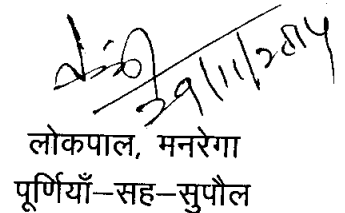 29/11/2014
लोकपाल, मनरेगा
पूर्णियाँ-सह-सुपौल